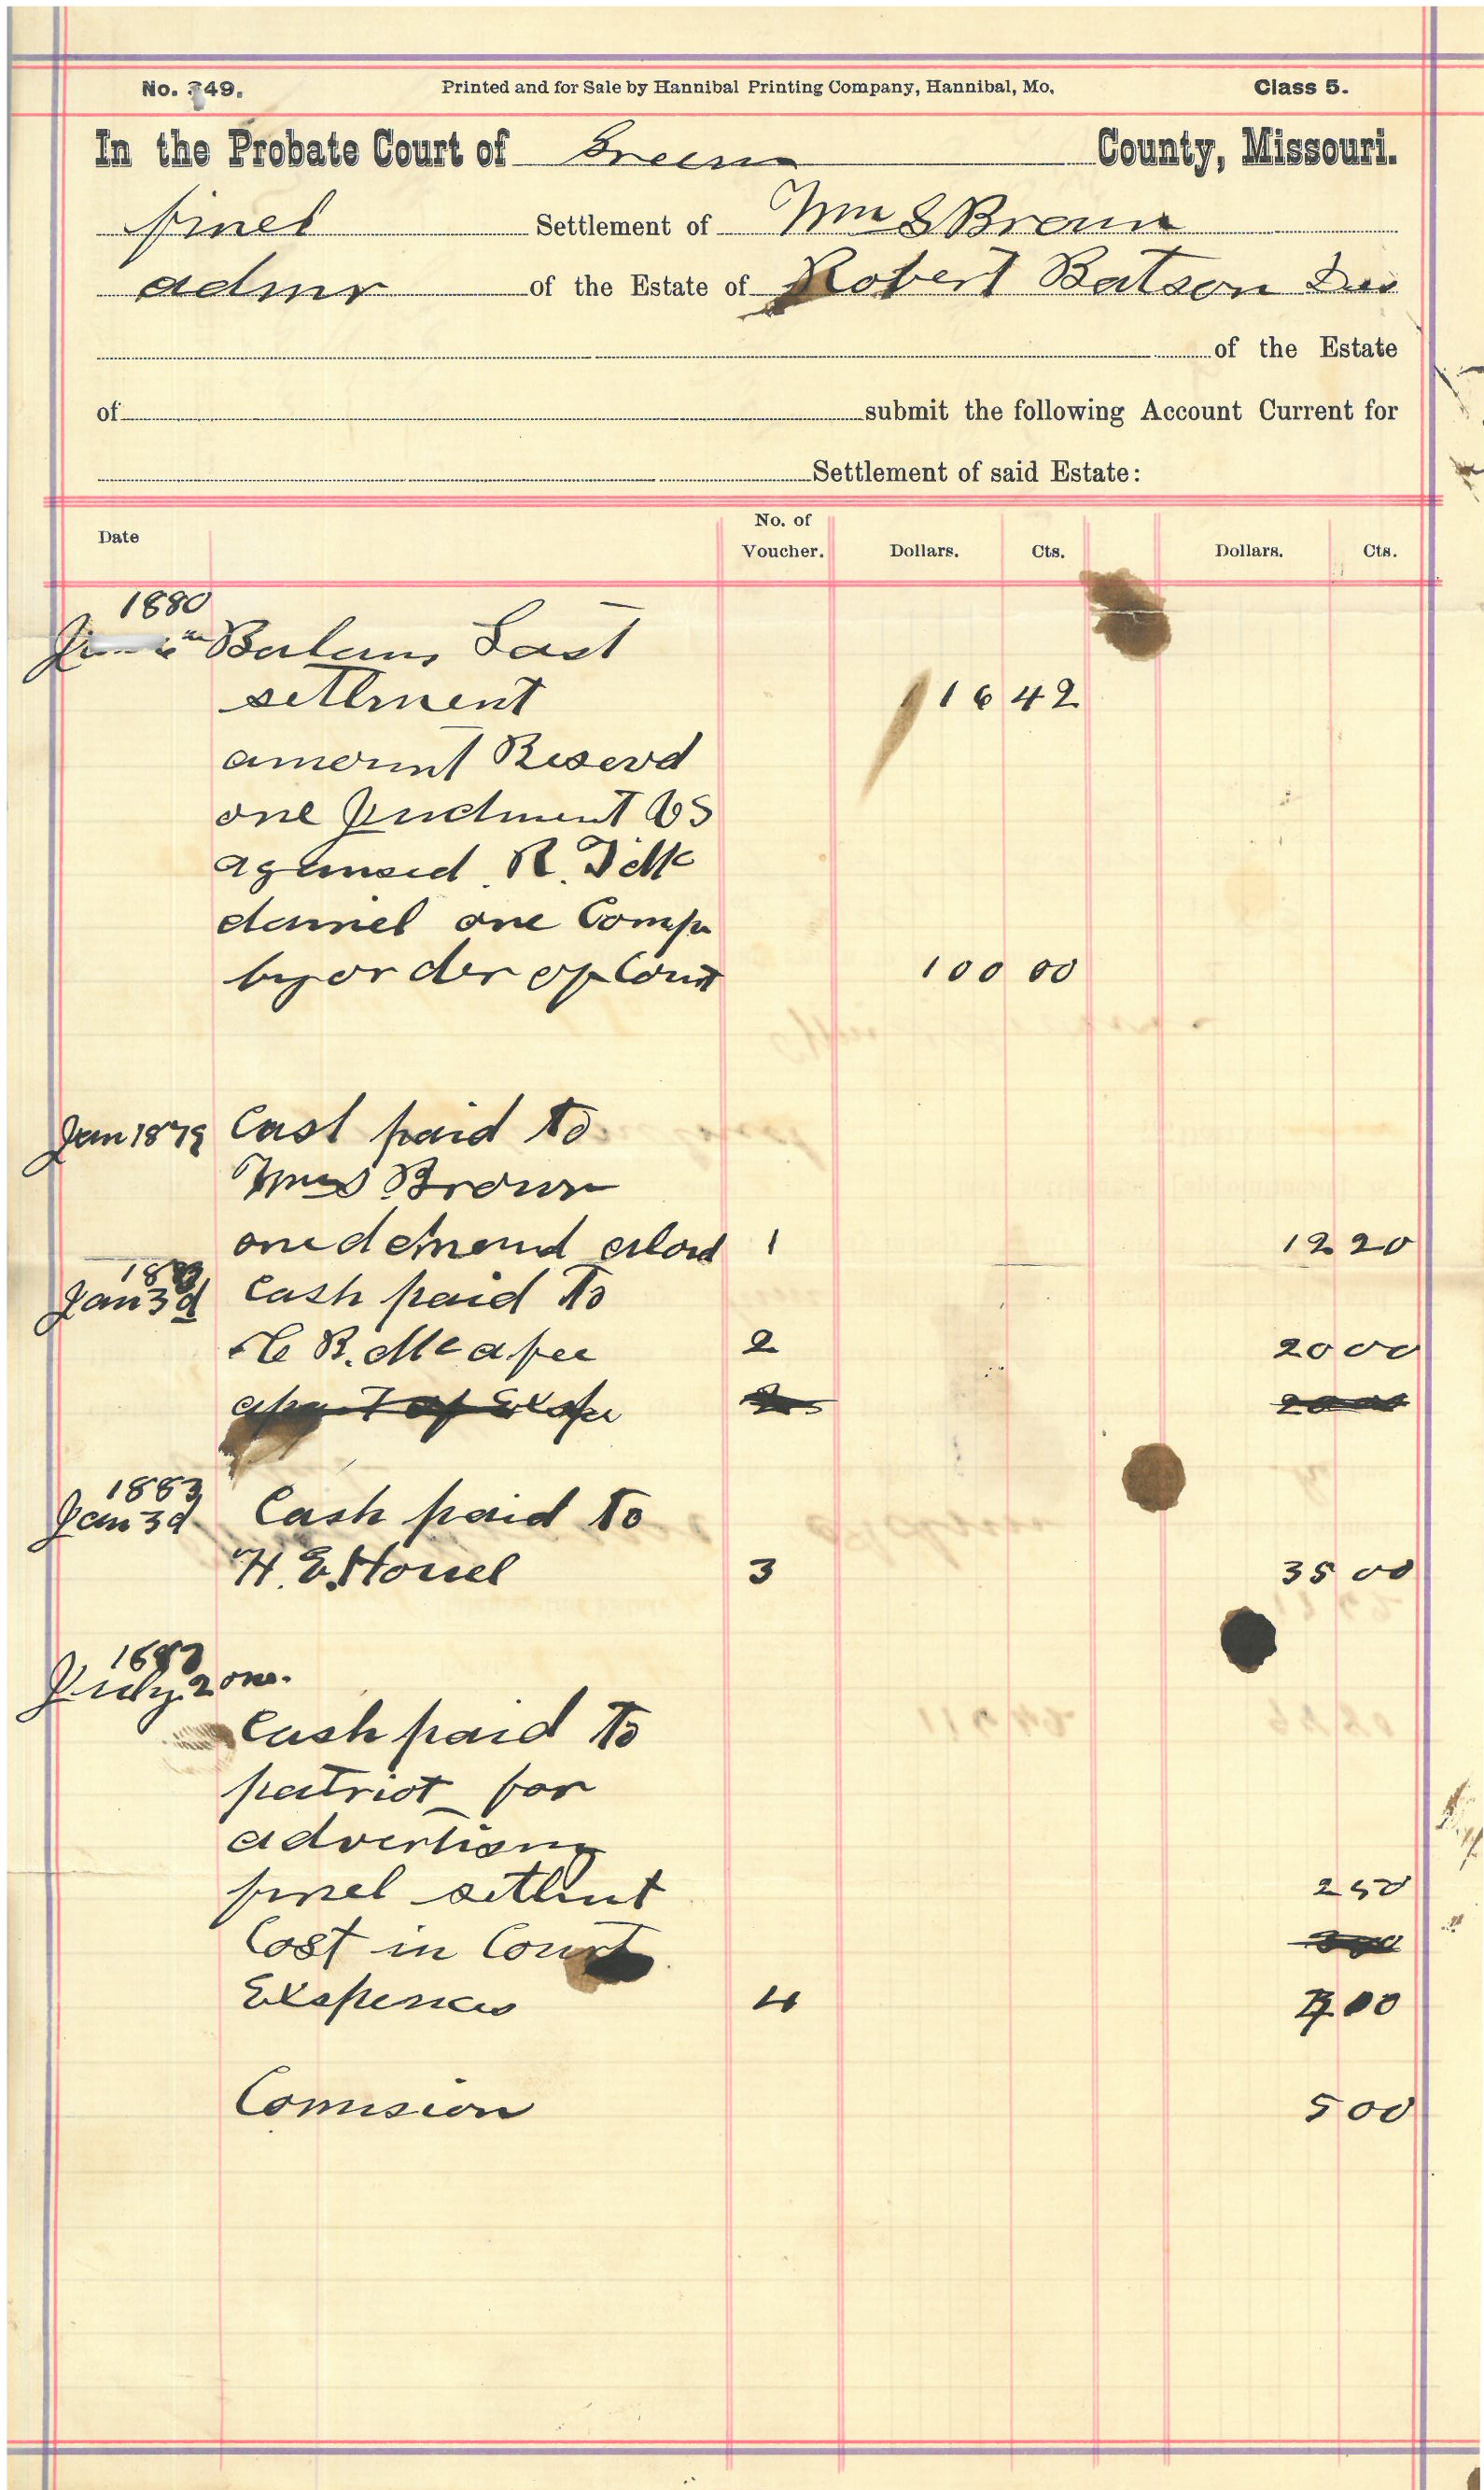 No. 349. Printed and for Sale by Hannibal Printing Company, Hannibal, Mo. Class 5.
In the Probate Court of Green County, Missouri.
finel Settlement of Wm S Brown
admr of the Estate of Robert Batson Des
of the Estate
of submit the following Account Current for
Settlement of said Estate:
Date No. of Voucher. Dollars. Cts. Dollars. Cts.
1880
Balanc Last
setlment 116 42
amount Reserd
one Judment VS
agansed R. T. Mc
daniel one Comp
by order of Court 100 00
Jan 1879 Cast paid to
Wm S Brown
one demand alowd 1 12 20
Jan 3d Cash paid To
C B. McAfee 2 20 00
apart of Exspe
1883
Jan 3d Cash paid To
H. E. Howel 3 35 00
July 2
Cash paid To
patriot for
advertising
finel setlmt 2 50
Cost in Court
Exspences 4 00
Comision 5 00